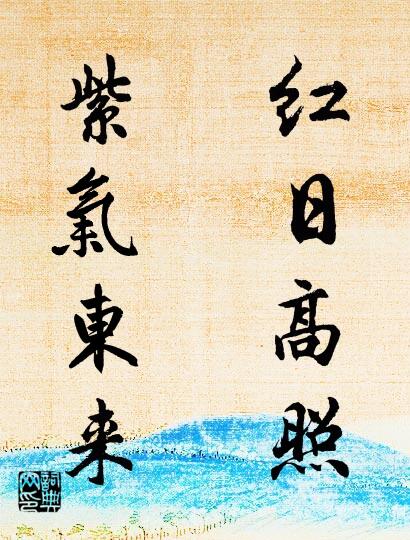 红日高照
紫氣東来
詞典
网印